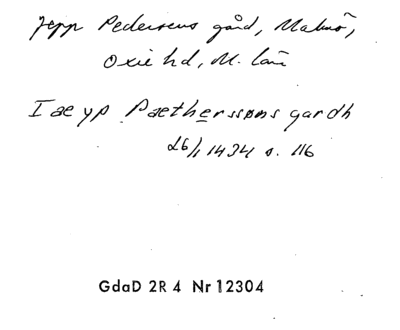 Jepp Pedersens gård, Malmö,
Oxie hd, M. län
Iaeyp Paetherssøns gardh
26/1 1434 s. 116
GdaD 2R 4 Nr 12304